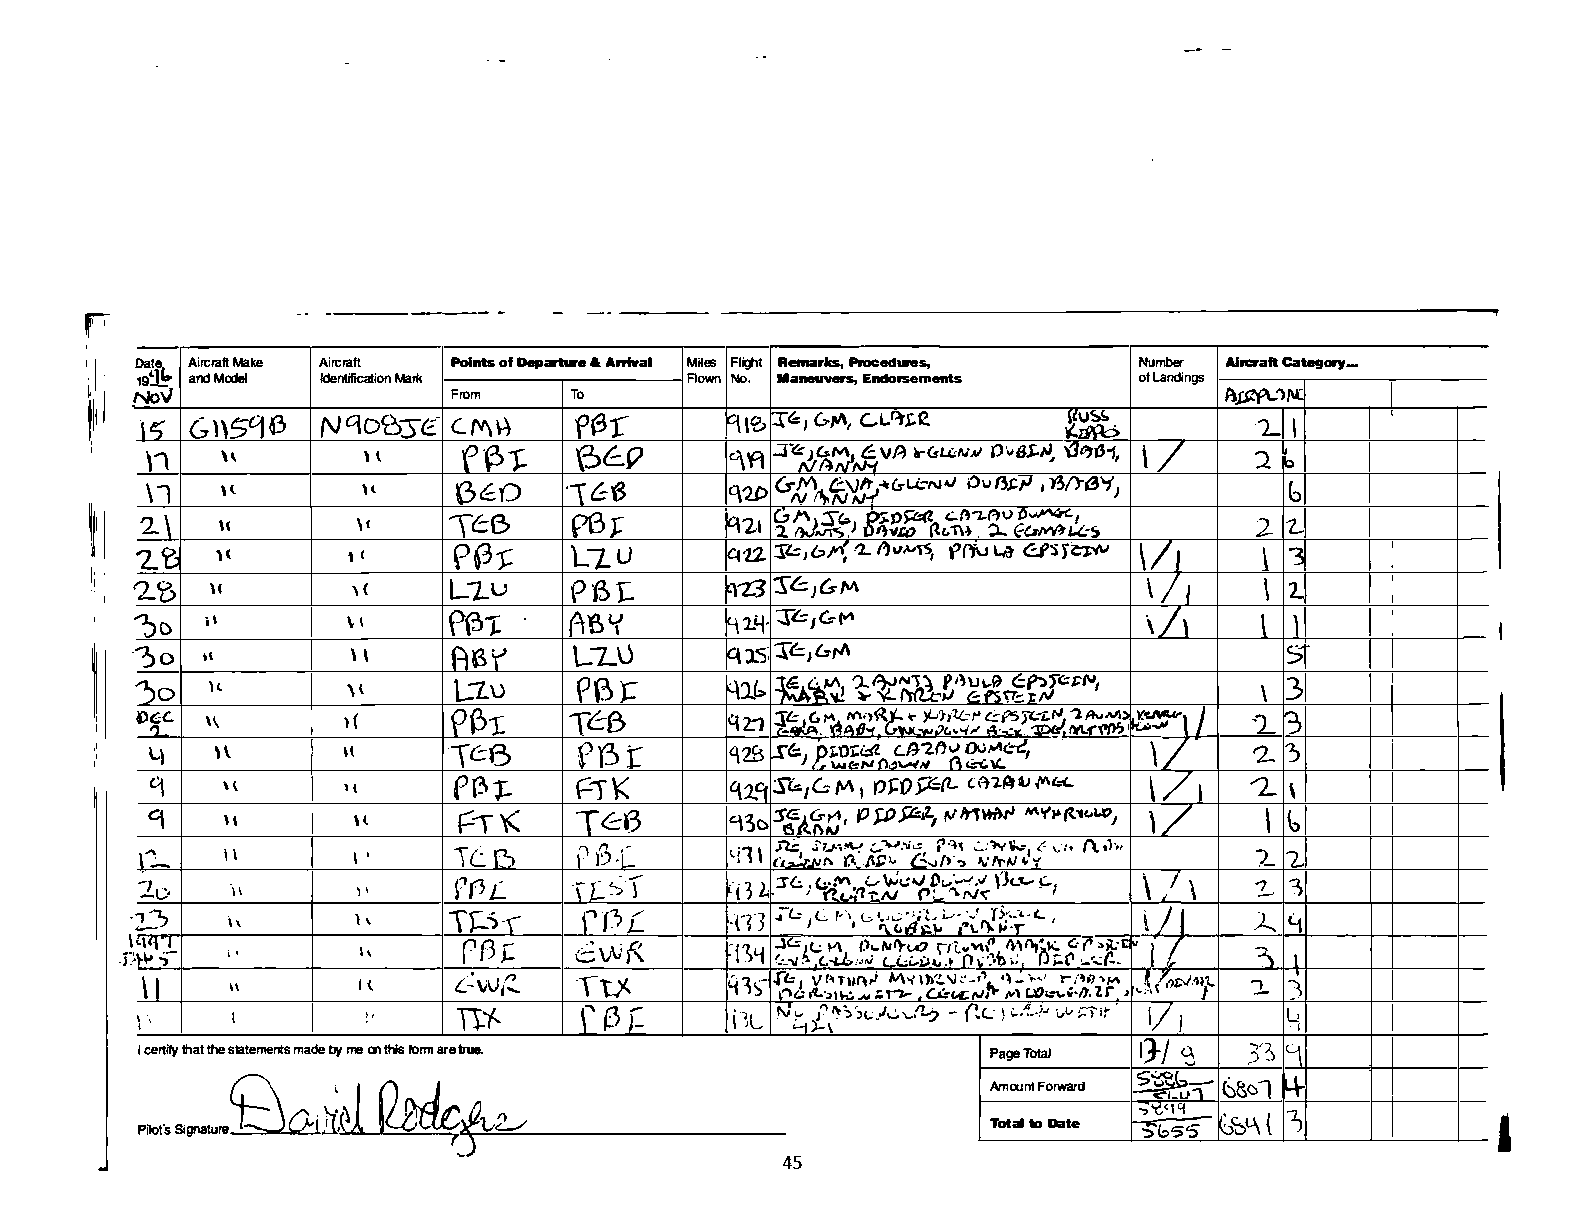 Date Aircraft Make Aircraft Points of Departure & Arrival Miles Flight Remarks, Procedures, Number Aircraft Category...
1996 and Model Identification Mark Flown No. Maneuvers, Endorsements of Landings
NOV From To AIRPLANE
15 G1159B N908JE CMH PBI 918 JE, GM, CLAIR RUSS 2 1
17 " " PBI BED 919 JE, GM, EVA + GLENN DUBIN, BABY, 1/ 2 6
NANNY
17 " " BED TEB 920 GM, EVA + GLENN DUBIN, BABY, 6
NANNY
21 " " TEB PBI 921 GM, JE, DIDIER CAZAUDUMEC, 2 2
2 AUNTS, DAVID ROTH, 2 FEMALES
28 " " PBI LZU 922 JE, GM, 2 AUNTS, PAULA EPSTEIN 1/1 1 3
28 " " LZU PBI 923 JE, GM 1/1 1 2
30 " " PBI ABY 924 JE, GM 1/1 1 1
30 " " ABY LZU 925 JE, GM 5
30 " " LZU PBI 926 JE, GM, 2 AUNTS PAULA EPSTEIN, 1 3
MARK + KAREN EPSTEIN
DEC
2 " " PBI TEB 927 JE, GM, MARK + KAREN EPSTEIN, 2 AUNTS, 1/ 2 3
BABY,
4 " " TEB PBI 928 JE, DIDIER CAZAUDUMEC, 1/ 2 3
GWENDOLYN BECK
9 " " PBI FTK 929 JE, GM, DIDIER CAZAUMEC 1/1 2 1
9 " " FTK TEB 930 JE, GM, DIDIER, NATHAN MYHRVOLD, 1/ 1 6
12 " " TEB PBI 931 JE, 2 2
EVA'S NANNY
20 " " PBI TIST 932 JE, GM, GWENDOLYN BECK, 1/1 2 3
ROBIN PLANT
23 " " TIST PBI 933 JE, GM, GWENDOLYN BECK, 1/1 2 4
ROBIN PLANT
1997
JAN 5 " " PBI EWR 934 JE, GM, DONALD TRUMP, MARK EPSTEIN 1/ 3 1
EVA, GLENN DUBIN, DIDIER
11 " " EWR TIX 935 JE, NATHAN MYHRVOLD, 2 3
11 " " TIX PBI 936 NO PASSENGERS - 1/1 4
I certify that the statements made by me on this form are true. Page Total 13/9 33 9
Amount Forward 5886 6807 4
Total to Date 5899 5655 6841 3
Pilot's Signature David Rodgers
45